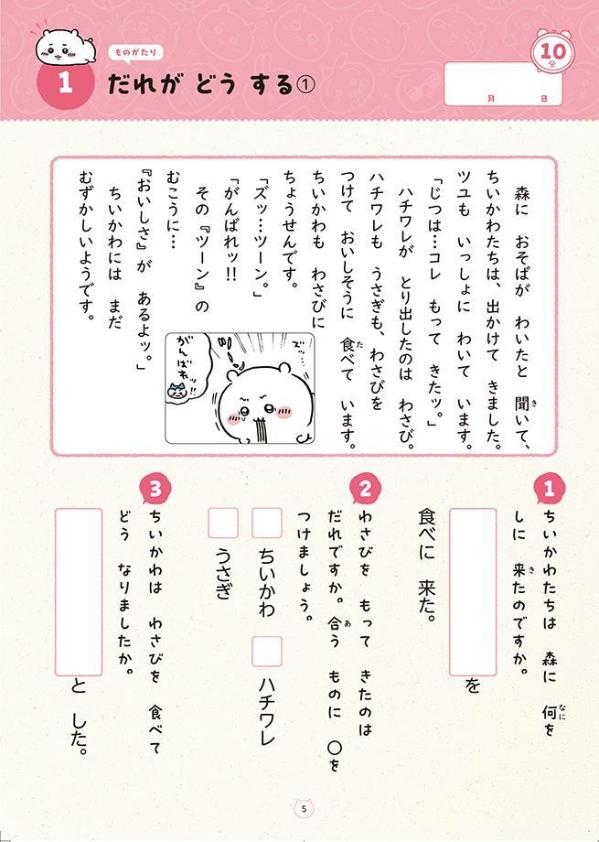 ものがたり
1 だれが どう する①
10分
月 日
森に おそばが わいたと 聞いて、
ちいかわたちは、出かけて きました。
ツユも いっしょに わいて います。
「じつは…コレ もって きたッ。」
ハチワレが とり出したのは わさび。
ハチワレも うさぎも、わさびを
つけて おいしそうに 食べて います。
ちいかわも わさびに
ちょうせんです。
「ズッ…ツーン。」
「がんばれッ!!
その『ツーン』の
むこうに…
『おいしさ』が あるよッ。」
ちいかわには まだ
むずかしいようです。
ズッ…
がんばれッ!!
1
ちいかわたちは 森に 何を
しに 来たのですか。
を
食べに 来た。
2
わさびを もって きたのは
だれですか。合う ものに ○を
つけましょう。
ちいかわ
ハチワレ
うさぎ
3
ちいかわは わさびを 食べて
どう なりましたか。
と した。
5